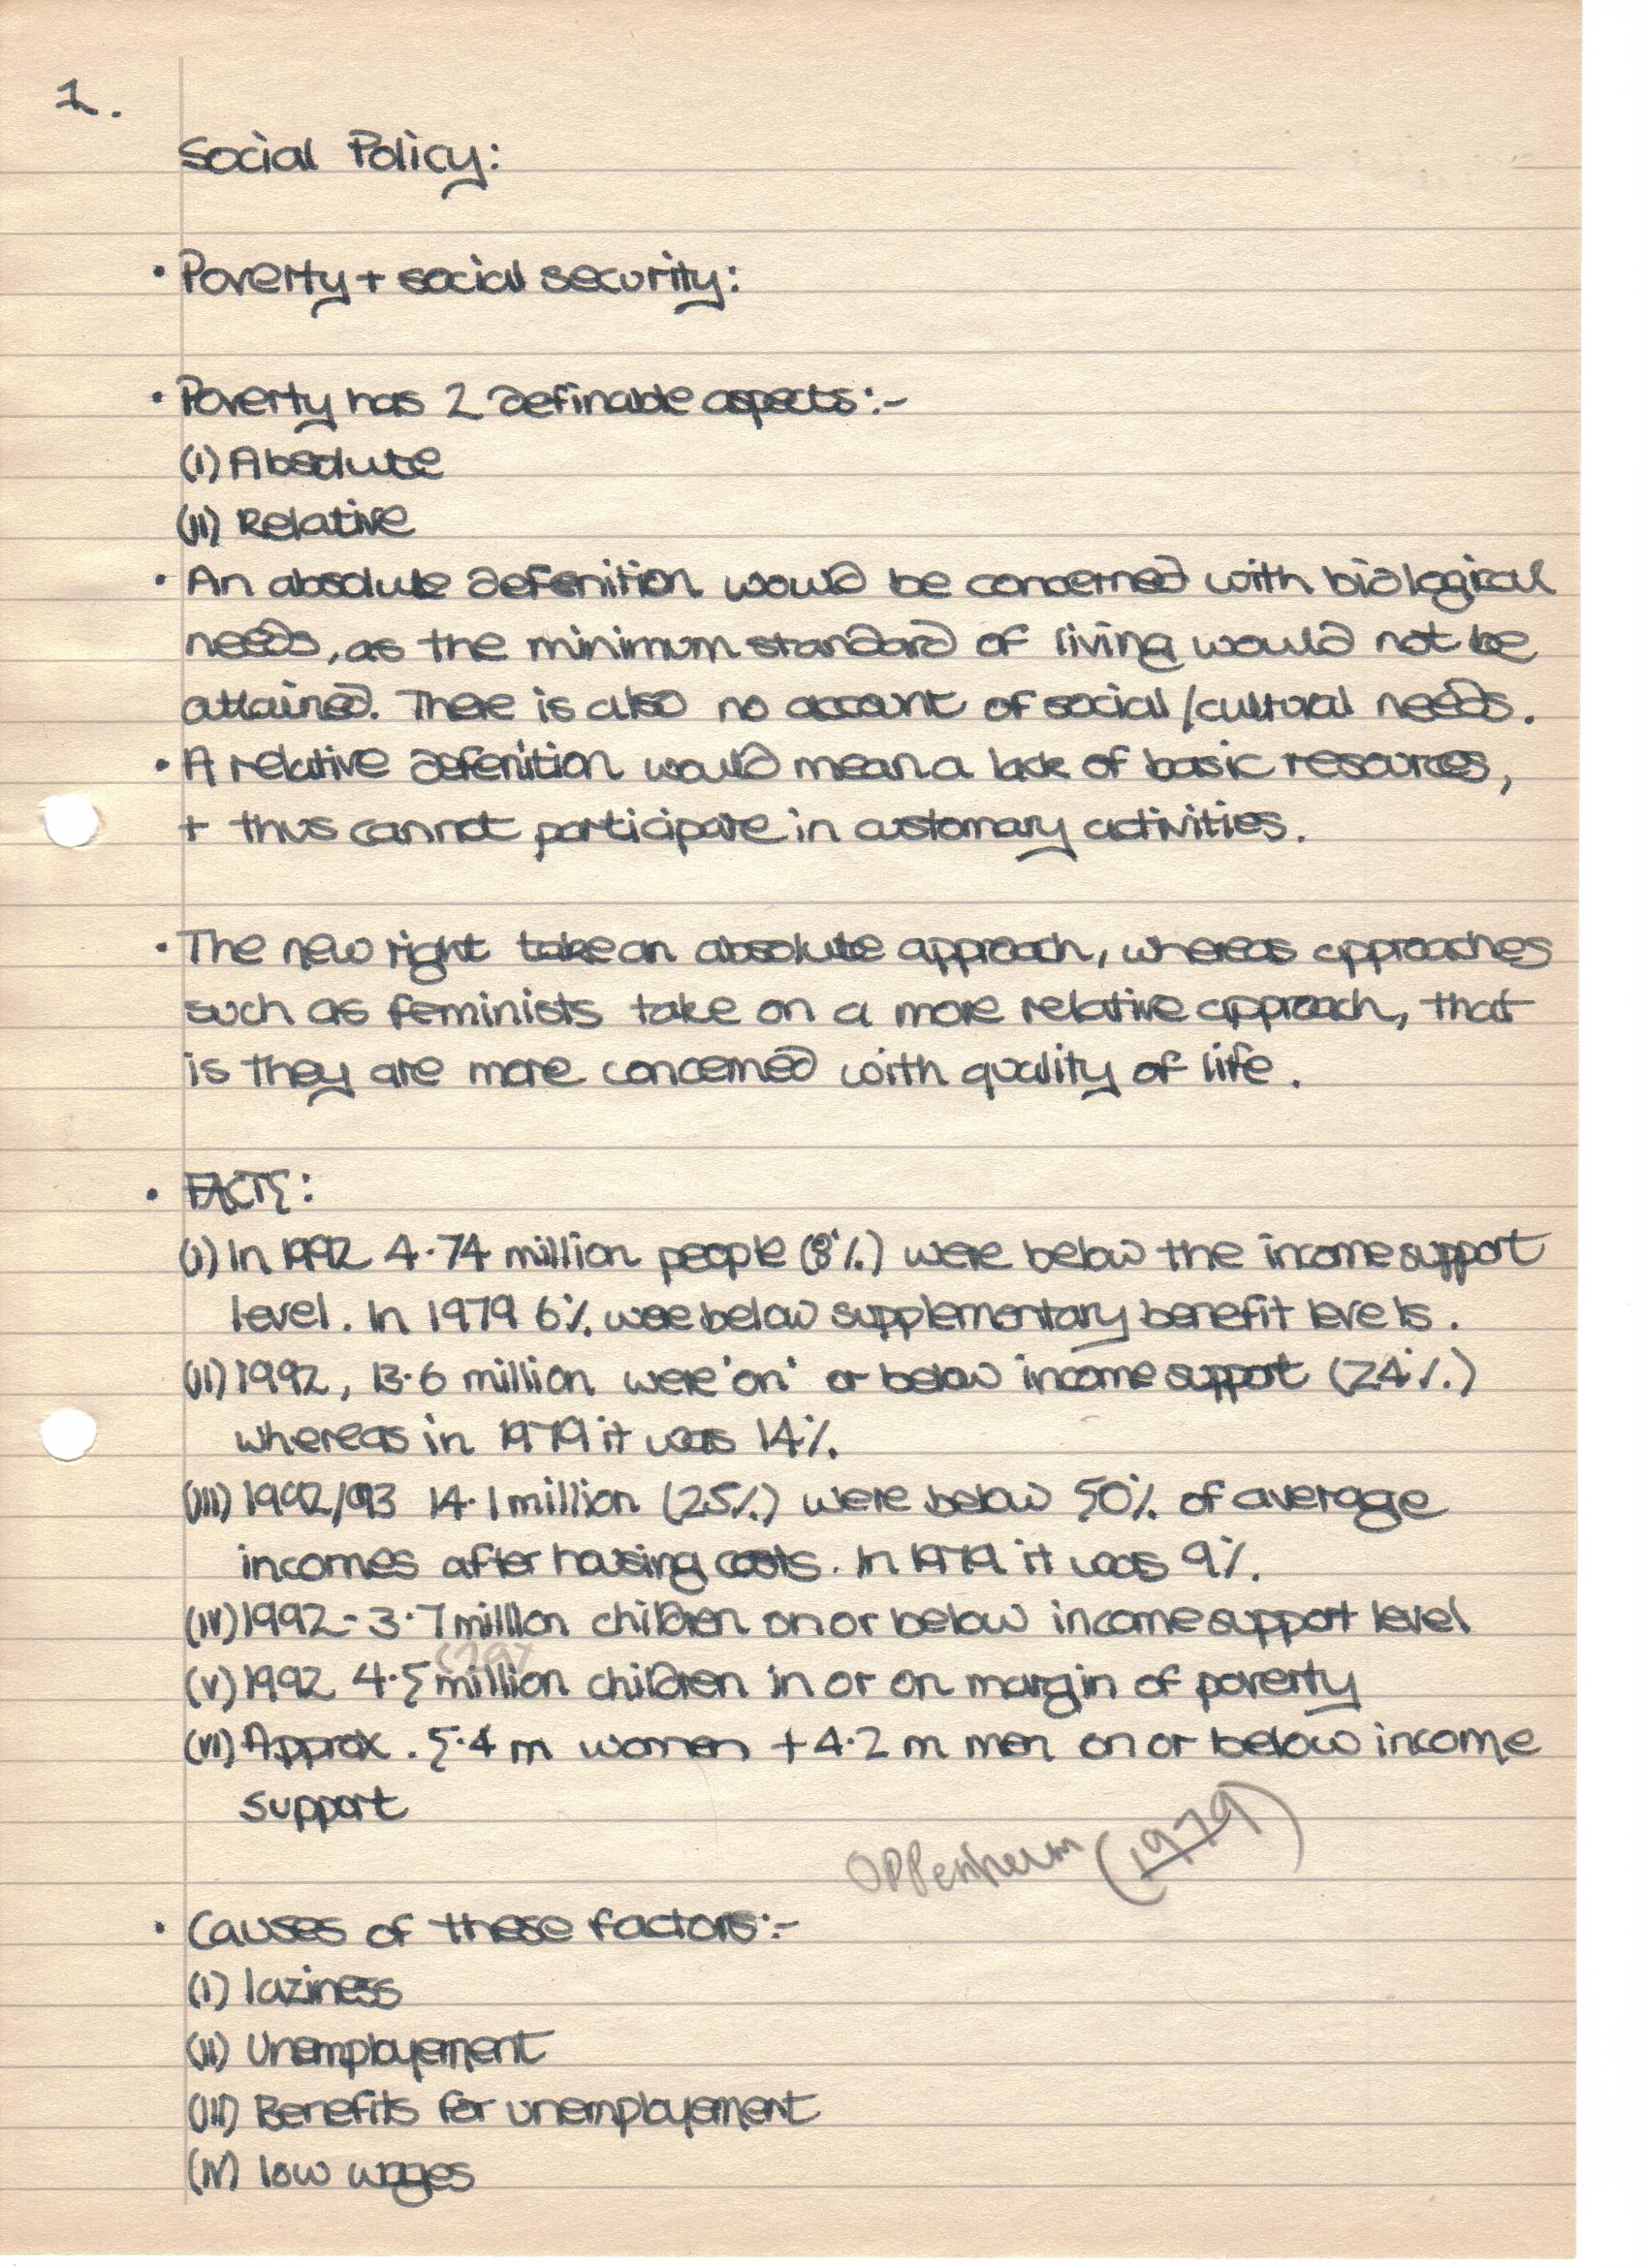 1.
Social Policy:
• Poverty + social security:
• Poverty has 2 definable aspects:-
(i) Absolute
(ii) Relative
• An absolute defenition would be concerned with biological
needs, as the minimum standard of living would not be
attained. There is also no account of social/cultural needs.
• A relative defenition would mean a lack of basic resources,
+ thus cannot participate in customary activities.
• The new right take an absolute approach, whereas approaches
such as feminists take on a more relative approach, that
is they are more concerned with quality of life.
• FACTS:
(i) In 1992 4·74 million people (8%) were below the income support
level. In 1979 6% were below supplementary benefit levels.
(ii) 1992, 13·6 million were 'on' or below income support (24%)
whereas in 1979 it was 14%.
(iii) 1992/93 14·1 million (25%) were below 50% of average
incomes after housing costs. In 1979 it was 9%.
(iv) 1992 - 3·7 million children on or below income support level
(29%
(v) 1992 4·5 million children in or on margin of poverty
(vi) Approx. 5·4 m women + 4·2 m men on or below income
support
Oppenheim (1979)
• Causes of these factors:-
(i) laziness
(ii) Unemployement
(iii) Benefits for unemployement
(iv) low wages